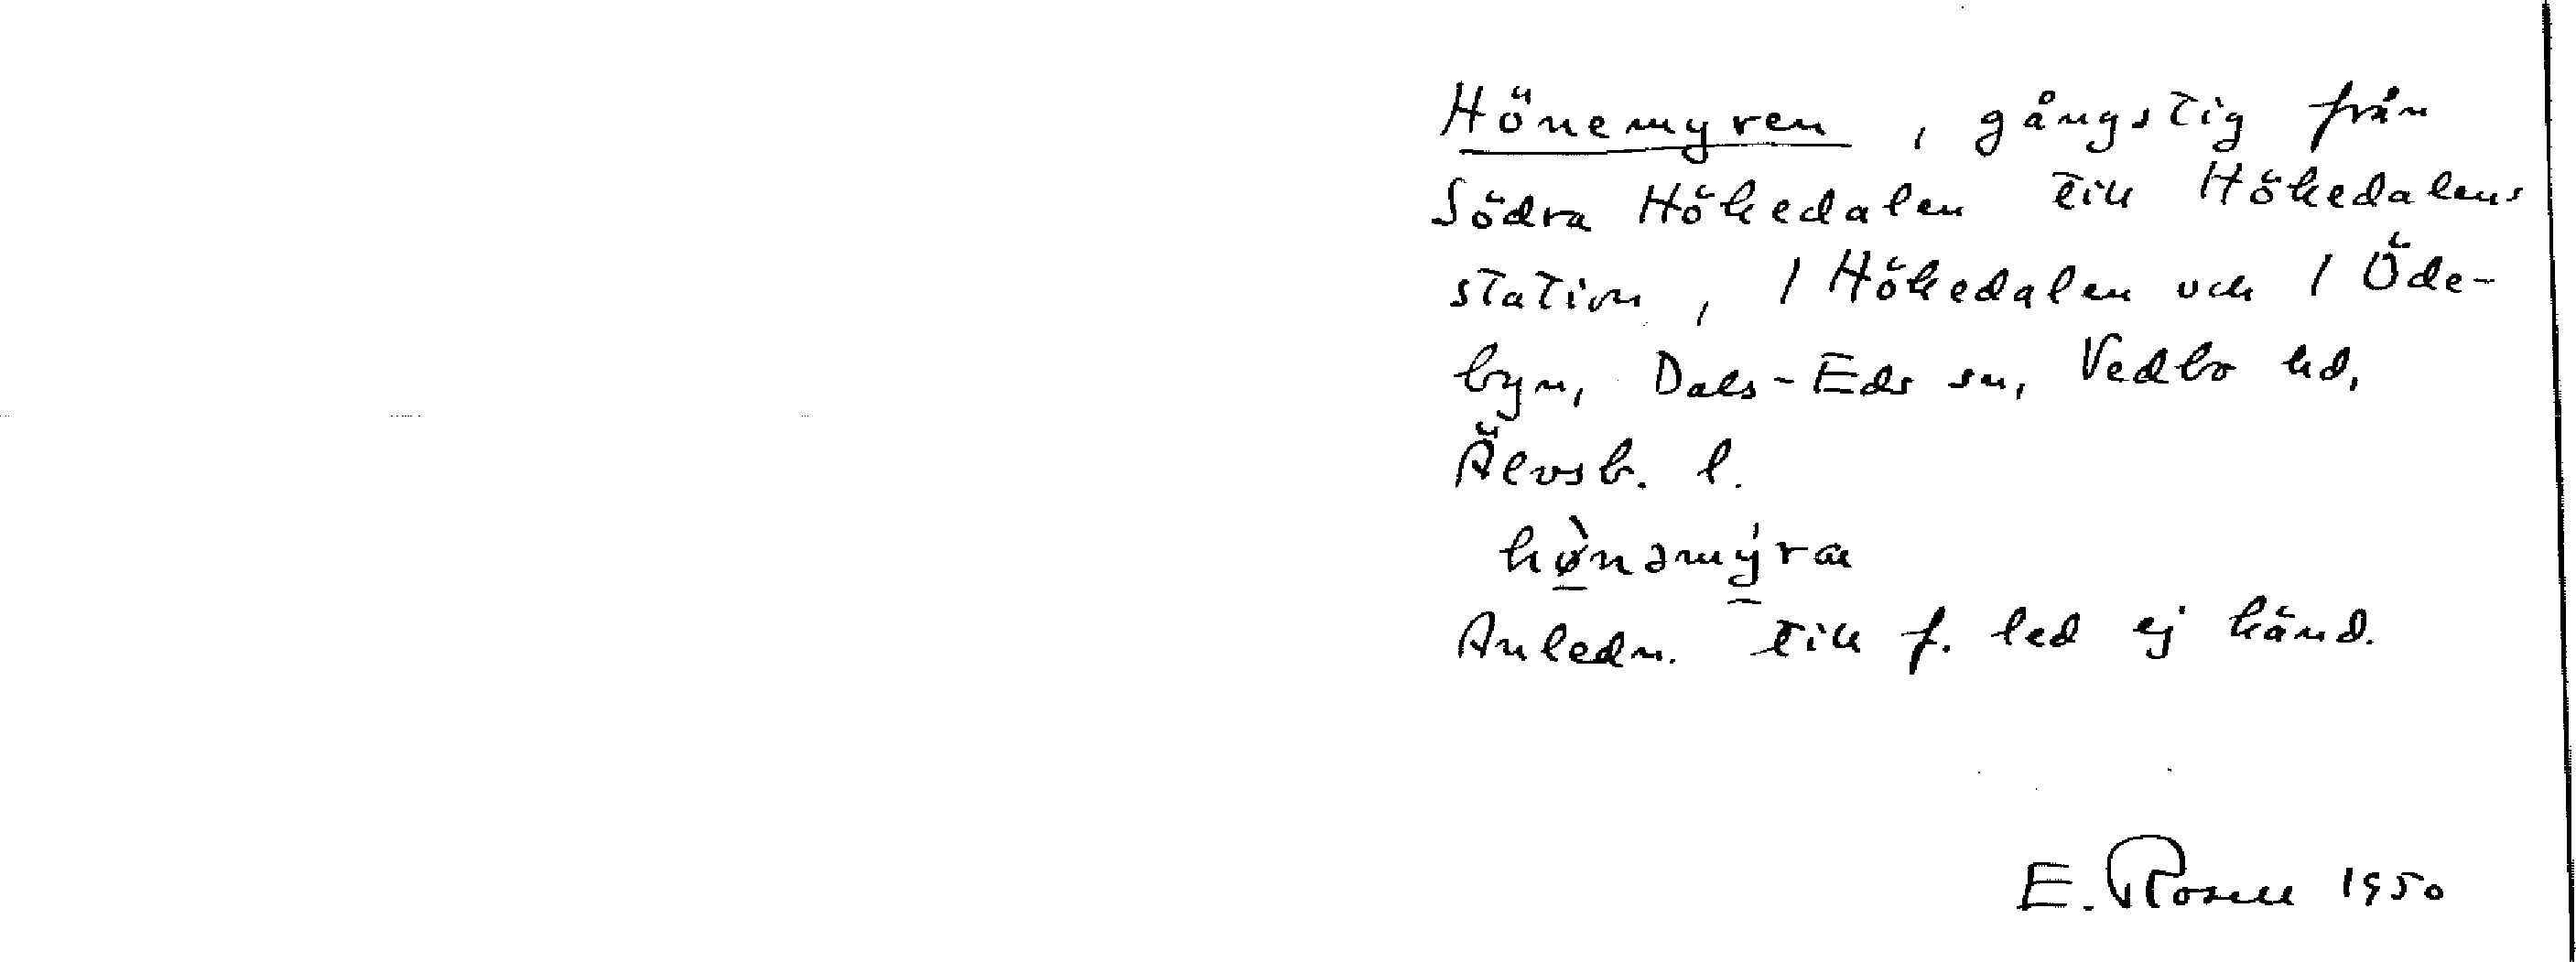 Hönemyren, gångstig från
Södra Hökedalen till Hökedalens
station, 1 Hökedalen och 1 Öde-
byn, Dals-Eds sn, Vedbo hd,
Älvsb. l.
hø̀nəmýra
Anledn. till f. led ej känd.
E. Rosell 1950